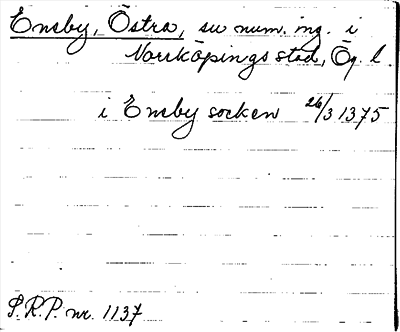 Eneby, Östra, su num. ing. i
Norrköpings stad, Ög. l.
i Eneby socken 26/3 1375
S.R.P. nr. 1137